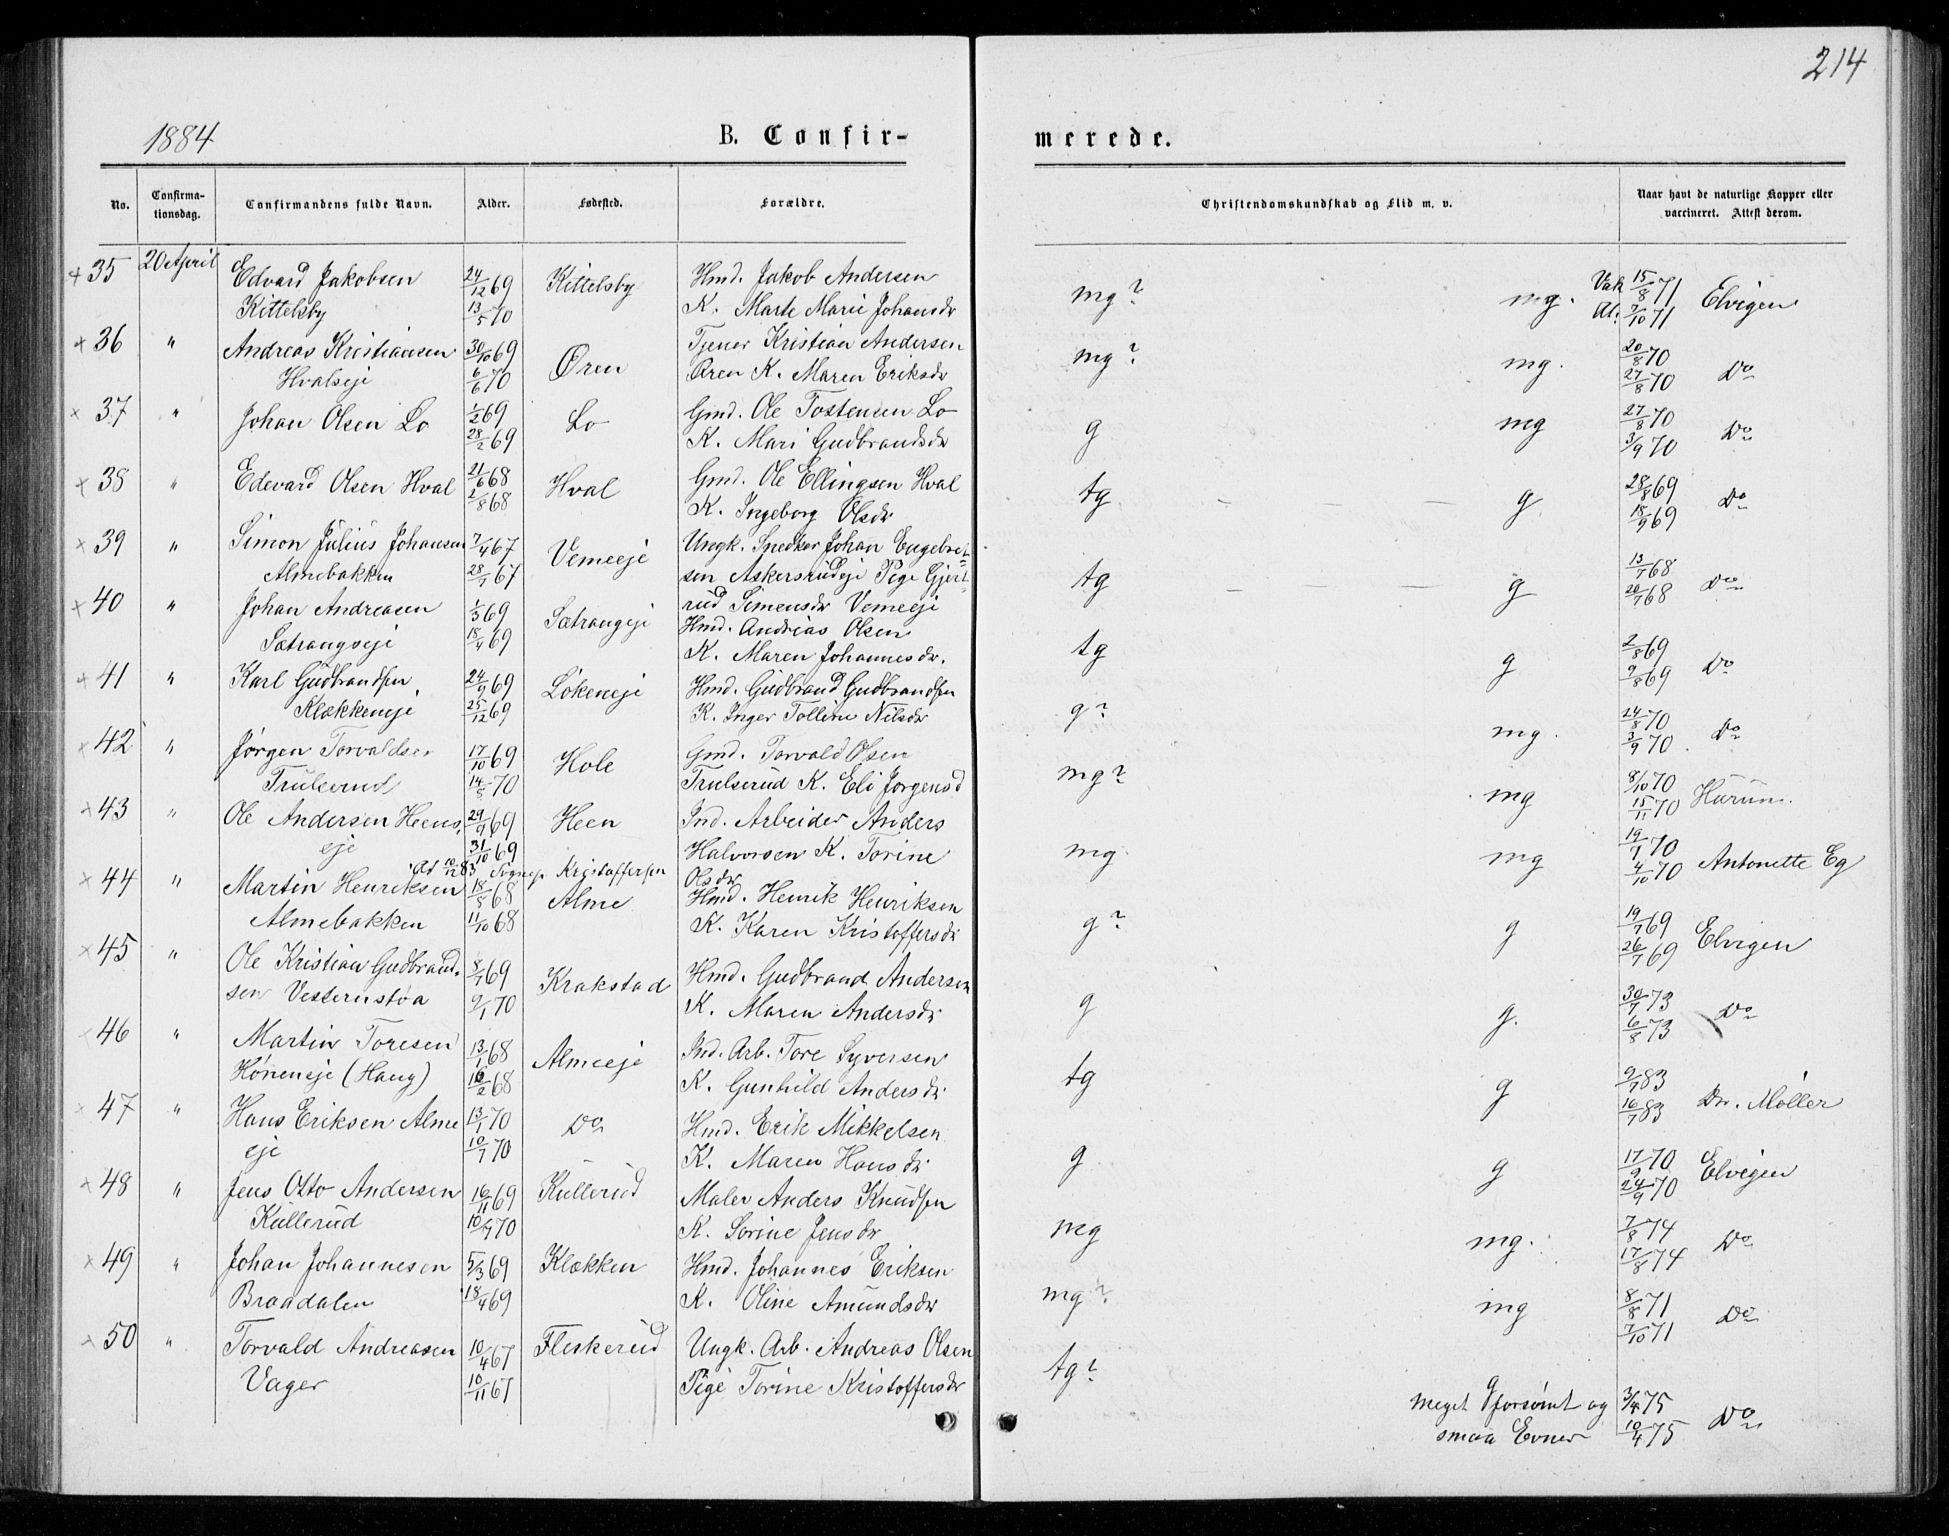 214
1884
B. Confir-
merede.
No.
Confirma-
tionsdag.
Confirmandens fulde Navn.
Alder.
Fødested.
Forældre.
Christendomskundskab og Flid m. v.
Naar havt de naturlige Kopper eller
vaccineret. Attest derom.
+ 35 20 April Edvard Jakobsen 24/12 69 Kittelsby Hmd. Jakob Andersen mg? mg. Vak 15/8 71 Elvigen
Kittelsby 13/5 70 K. Marte Marie Johansdr At. 7/10 71
+ 36 " Andreas Kristiansen 30/10 69 Øren Tjener Kristian Andersen mg? mg. 20/8 70 Do
Hvalseje 6/6 70 Øren K. Maren Eriksdr 27/8 70
× 37 " Johan Olsen Lo 1/2 69 Lo Gmd. Ole Tostensen Lo g mg 27/8 70 Do
28/2 69 K. Mari Gudbrandsdr 3/9 70
× 38 " Edevard Olsen Hval 21/6 68 Hval Gmd. Ole Ellingsen Hval tg - - g 28/8 69 Do
2/8 68 K. Ingeborg Olsdr 18/9 69
× 39 " Simon Julius Johansen 7/4 67 Vemeeje Ungk. Snedker Johan Engebret- tg - - g 13/7 68 Do
Almebakken 28/7 67 sen Askersrudeje Pige Gjert- 20/7 68
rud Simensdr Vemeeje
+ 40 " Johan Andreasen 1/3 69 Sætrangeje Hmd. Andreas Olsen tg g 2/8 69 Do
Sætrangseje 18/4 69 K. Maren Johannesdr. 9/8 69
+ 41 " Karl Gudbrandsen 24/9 69 Løkeneje Hmd. Gudbrand Gudbrandsen g? mg. 24/8 70 Do
Klækkeneje 25/12 69 K. Inger Tolline Nilsdr 3/9 70
× 42 " Jørgen Torvaldsen 17/10 69 Hole Gmd. Torvald Olsen mg? mg 8/10 70 Hurum.
Trulserud 14/5 70 Trulserud K. Eli Jørgensd 15/11 70
× 43 " Ole Andersen Heens- 29/9 69 Heen Ind. Arbeider Anders mg mg 19/1 70 Antonette Eg
eje 31/10 69 Halvorsen K. Torine 4/10 70
At 10/12 83 Sognep. Kristoffersen Olsdr
× 44 " Martin Henriksen 18/8 68 Alme Hmd. Henrik Henriksen g? g 19/7 69 Elvigen
Almebakken 11/10 68 K. Karen Kristoffersdr 26/7 69
× 45 " Ole Kristian Gudbrand- 8/7 69 Krakstad Hmd. Gudbrand Andersen g g. 30/7 73 Do
sen Vesternstøa 9/1 70 K. Maren Andersdr 6/8 73
× 46 " Martin Toresen 13/1 68 Almeeje Ind. Arb. Tore Syversen tg g 9/7 83 Dr. Møller
Høneneje (Haug) 16/2 68 K. Gunhild Andersdr 16/7 83
× 47 " Hans Eriksen Alme 13/1 70 Do Hmd. Erik Mikkelsen g g 17/9 70 Elvigen
eje 10/7 70 K. Maren Hansdr 24/9 70
× 48 " Jens Otto Andersen 16/11 69 Kullerud Maler Anders Knudsen mg mg. 7/8 74 Do
Kullerud 10/4 70 K. Sorine Jensdr 17/8 74
× 49 " Johan Johannesen 5/3 69 Klækken Hmd. Johannes Eriksen mg? mg 8/8 71 Do
Braadalen 18/4 69 K. Oline Amundsdr 7/10 71
× 50 " Torvald Andreasen 10/4 67 Fleskerud Ungk. Arb. Andreas Olsen tg? g
Vager 10/11 67 Pige Torine Kristoffersdr
meget forsømt og 3/4 75 Do
smaa Evner 10/4 75